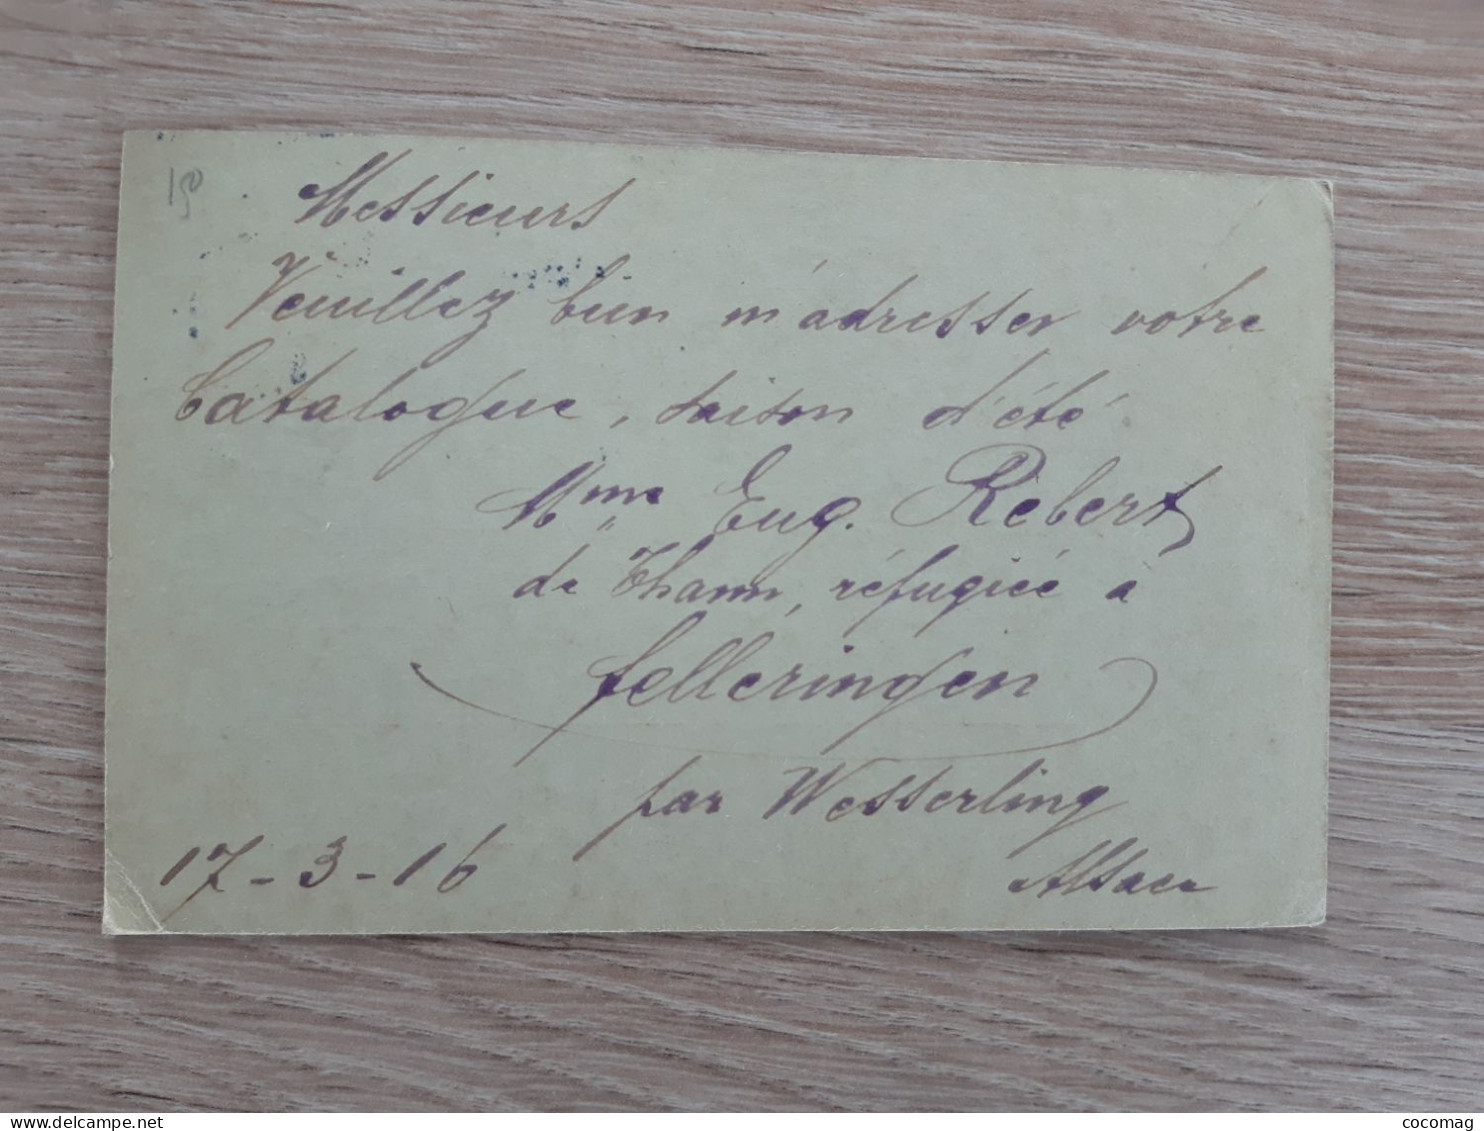 150
Messieurs
Veuillez bien m'adresser votre
Catalogue, saison d'été
Mme Eug. Rebert
de Thann, réfugiée à
Felleringen
par Wesserling
17-3-16 Alsace
cocomag